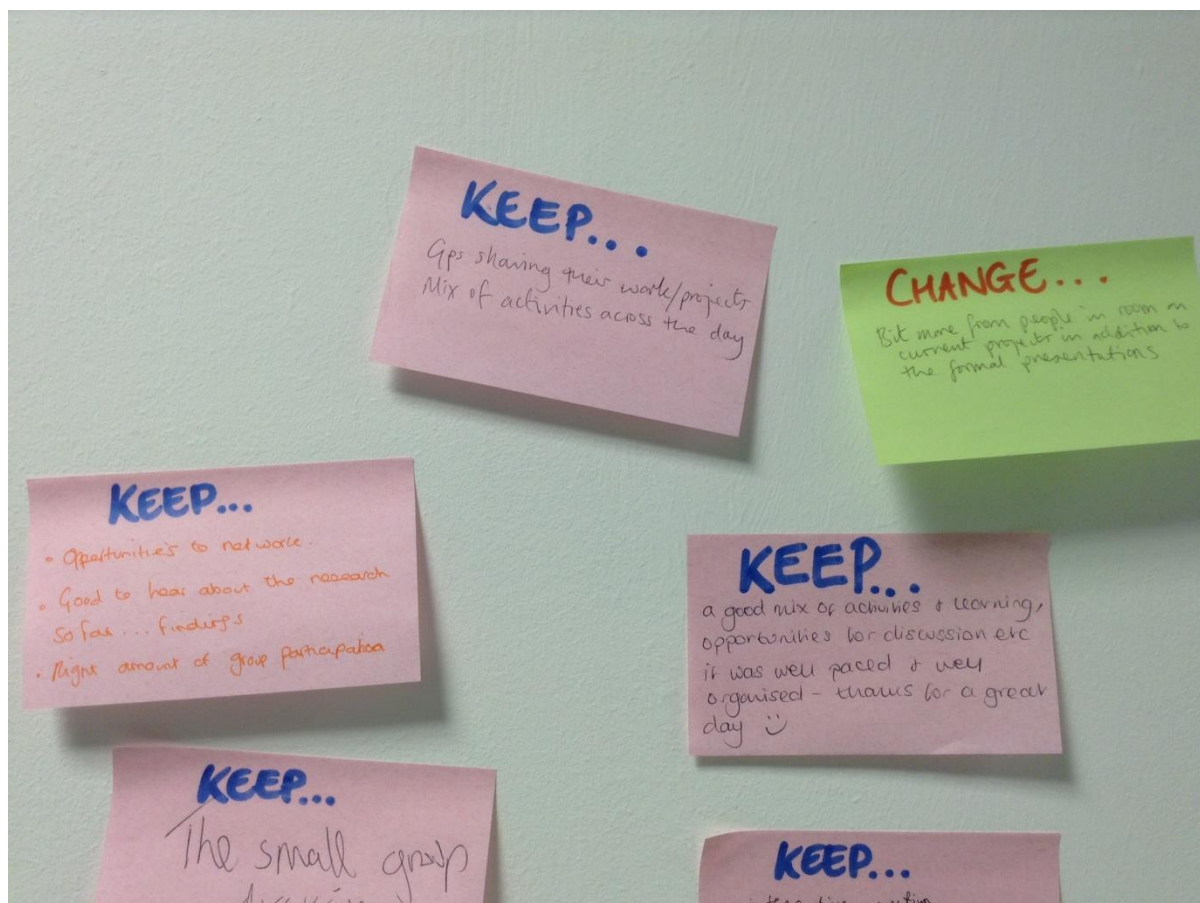 KEEP...
Gps sharing their work/projects
Mix of activities across the day
CHANGE...
Bit more from people in room on
current projects in addition to
the formal presentations
KEEP...
• Opportunities to network.
• Good to hear about the research
So far... findings
• Right amount of group participation
KEEP...
a good mix of activities & learning,
opportunities for discussion etc
it was well paced & well
organised - thanks for a great
day
KEEP...
The small group
KEEP...